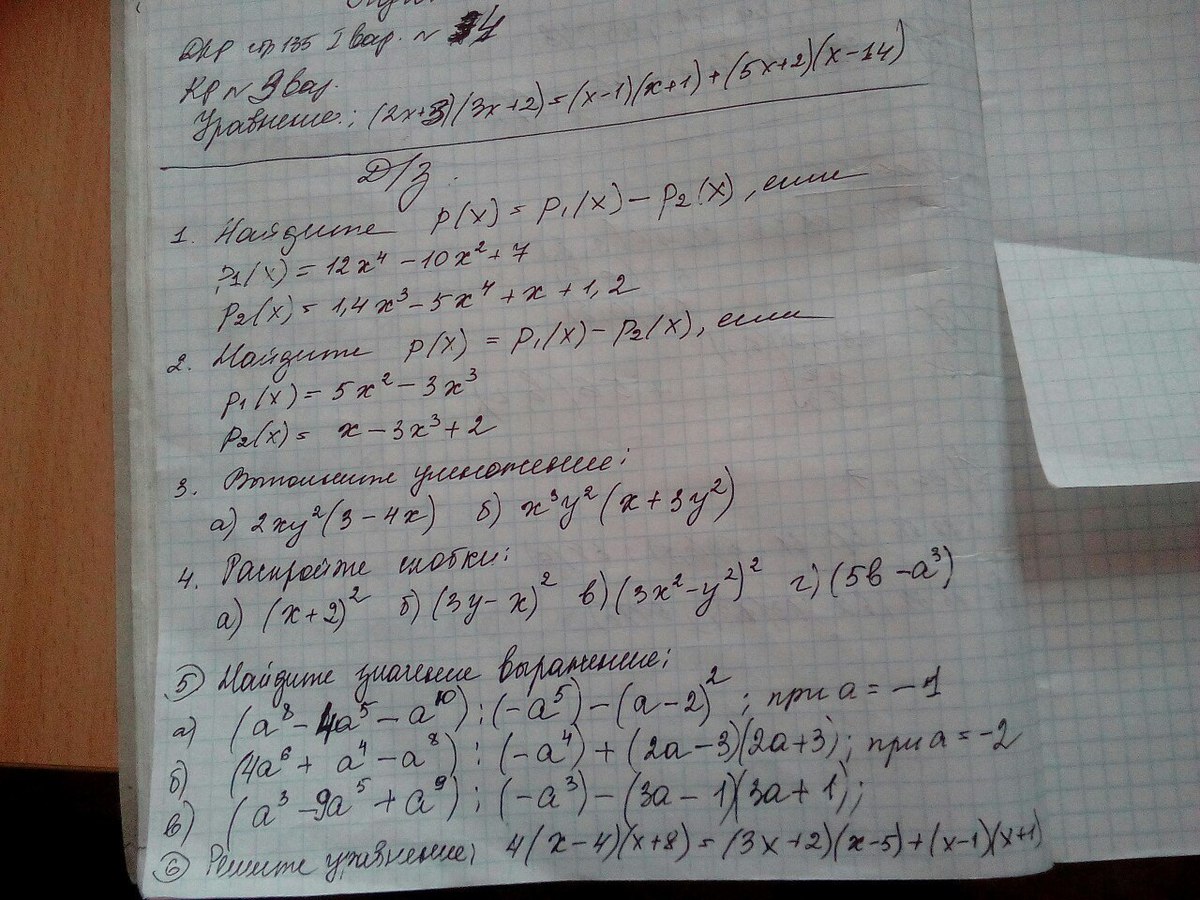 ДКР стр 135 I вар. N 4
Кр N 9 вар.
Уравнение: (2x+3)(3x+2)=(x-1)(x+1)+(5x+2)(x-14)
Д/з.
1. Найдите p(x) = p₁(x) - p₂(x), если
p₁(x) = 12x⁴ - 10x² + 7
p₂(x) = 1,4x³ - 5x⁴ + x + 1,2
2. Найдите p(x) = p₁(x) - p₂(x), если
p₁(x) = 5x² - 3x³
p₂(x) = x - 3x³ + 2
3. Выполните умножение:
а) 2xy²(3 - 4x) б) x³y²(x + 3y²)
4. Раскройте скобки:
а) (x+2)² б) (3y - x)² в) (3x² - y²)² г) (5b - a³)
5) Найдите значение выражение:
а) (a⁸ - 4a⁵ - a¹⁰) : (-a⁵) - (a - 2)²; при a = -1
б) (4a⁶ + a⁴ - a⁸) : (-a⁴) + (2a - 3)(2a + 3); при a = -2
в) (a³ - 9a⁵ + a⁹) : (-a³) - (3a - 1)(3a + 1);
6) Решите уравнение: 4(x - 4)(x + 8) = (3x + 2)(x - 5) + (x - 1)(x + 1)